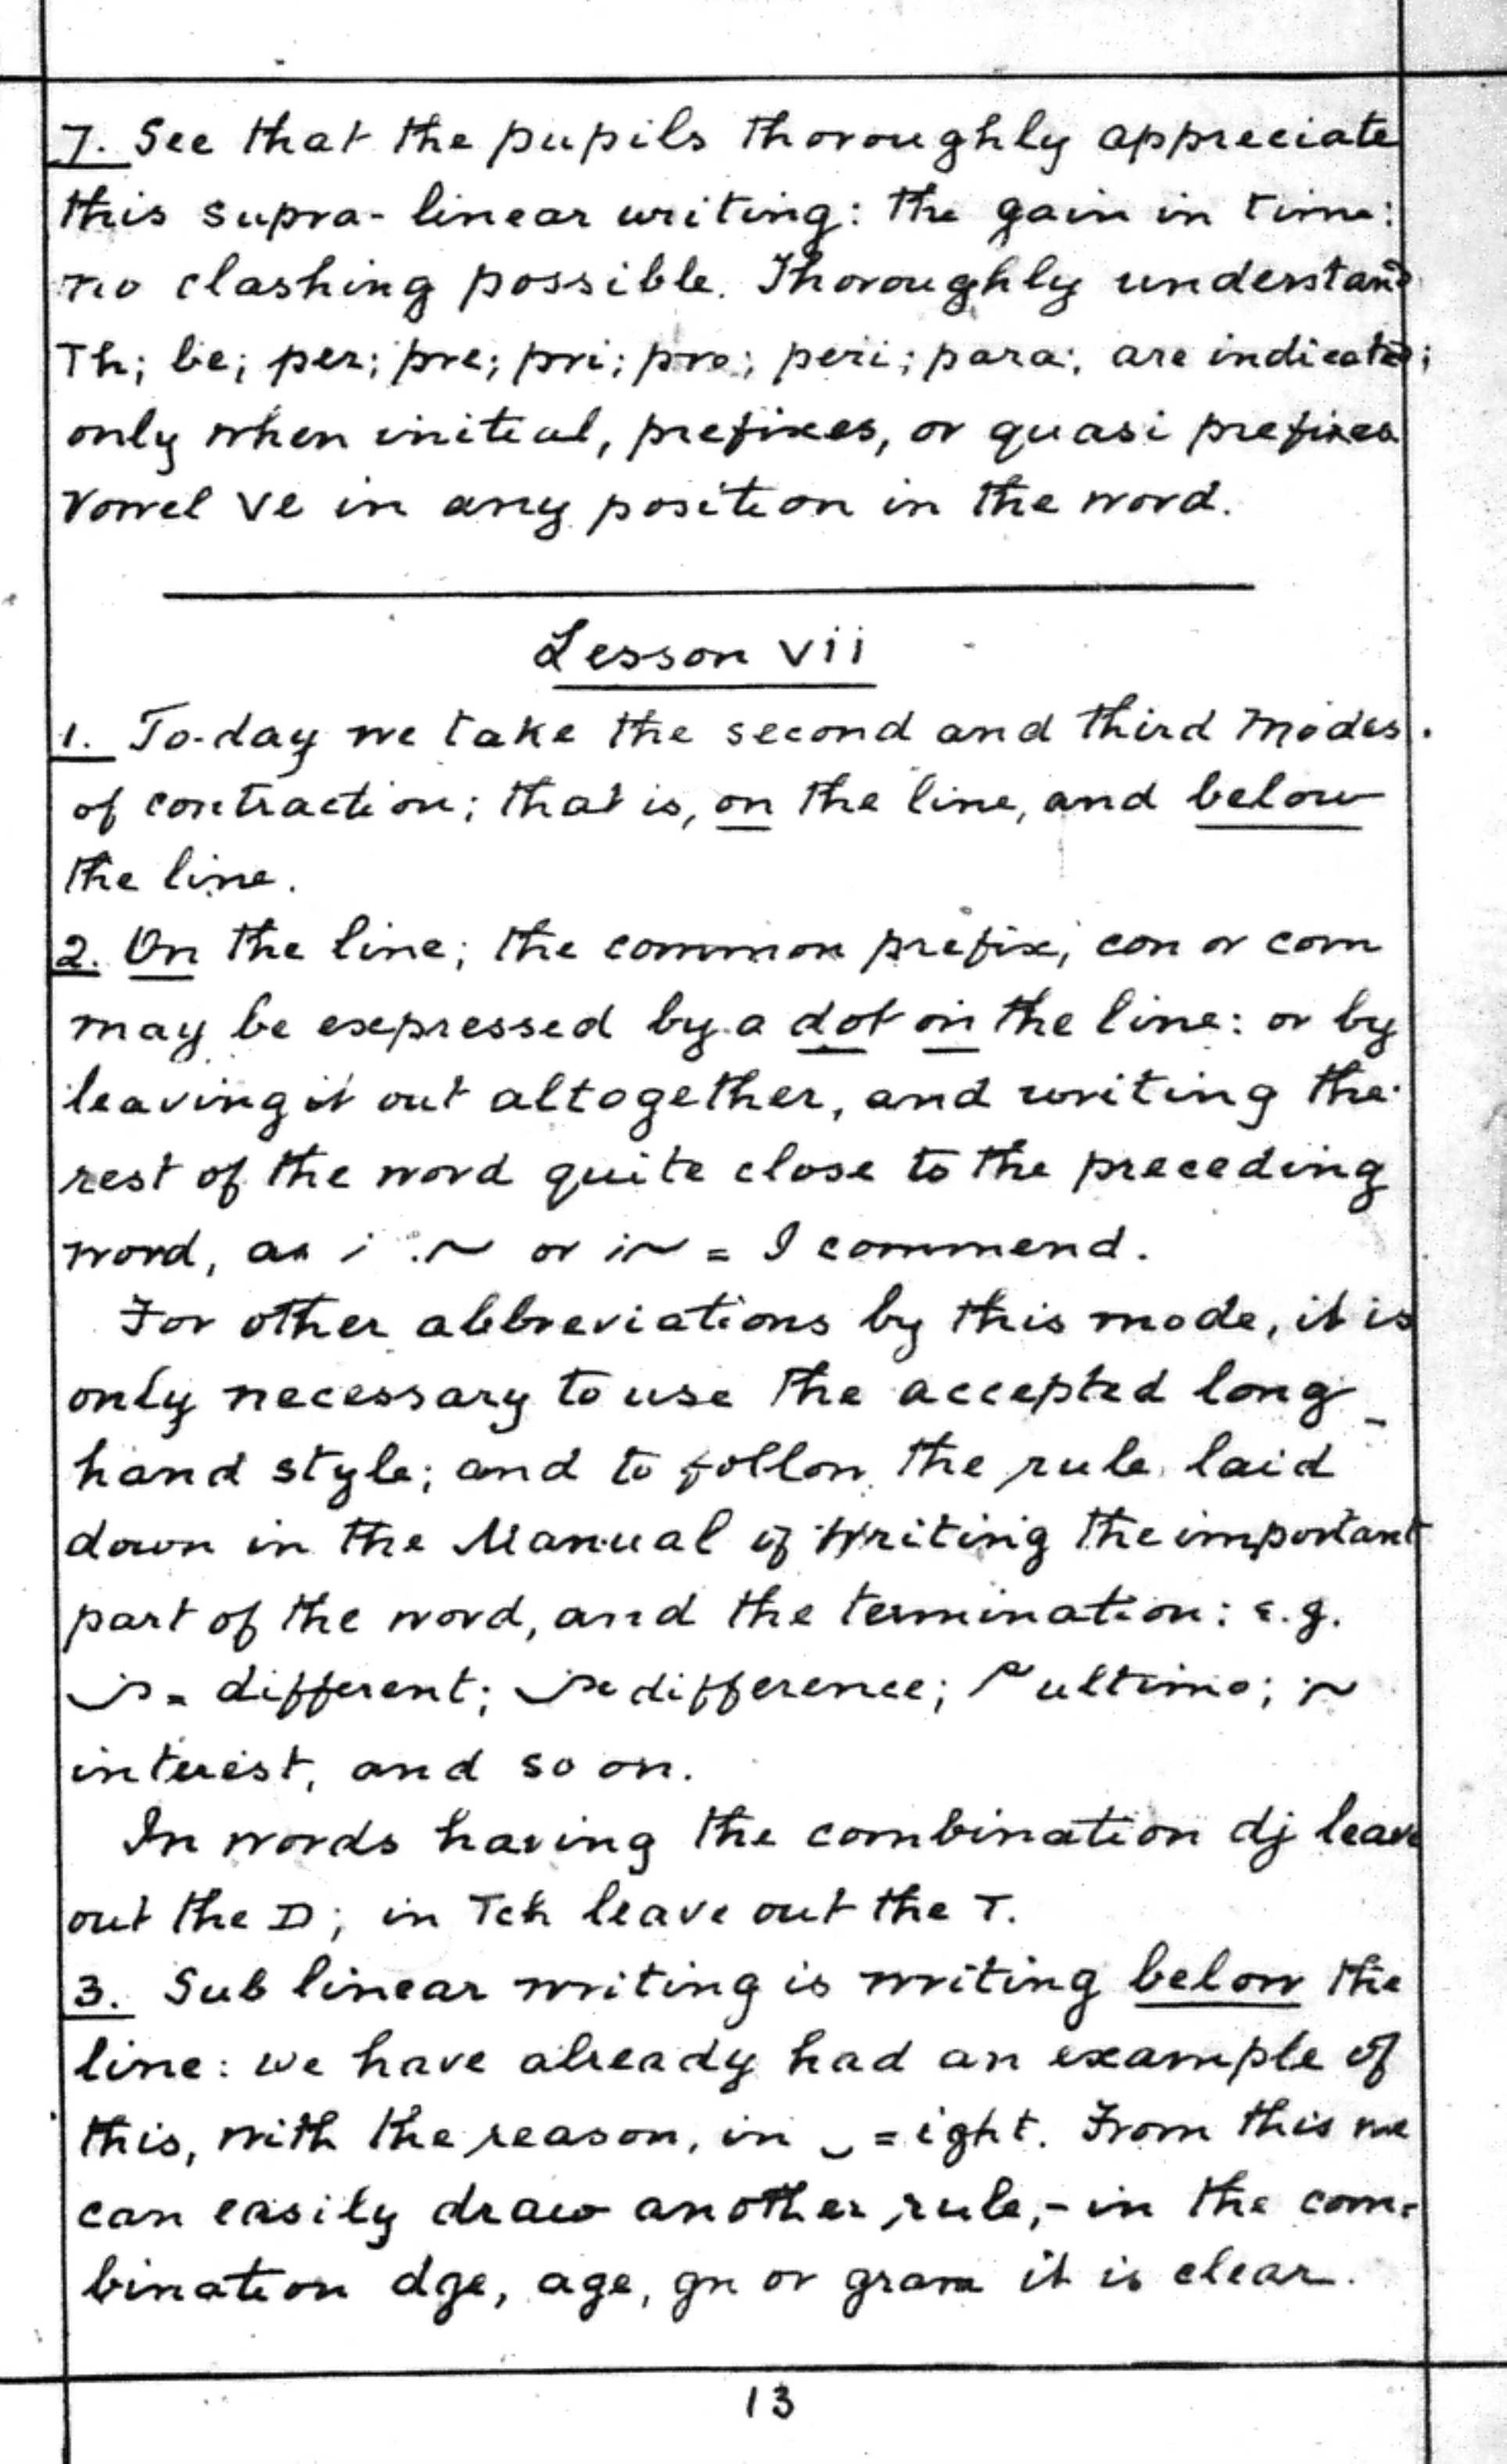 7. See that the pupils thoroughly appreciate
this supra-linear writing: the gain in time:
no clashing possible. Thoroughly understand
Th; be; per; pre; pri; pro; peri; para; are indicated;
only when initial, prefixes, or quasi prefixes
Vowel ve in any position in the word.
Lesson vii
1. To-day we take the second and third modes
of contraction; that is, on the line, and below
the line.
2. On the line; the common prefix, con or com
may be expressed by a dot on the line: or by
leaving it out altogether, and writing the
rest of the word quite close to the preceding
word, as or = I commend.
For other abbreviations by this mode, it is
only necessary to use the accepted long-
hand style; and to follow the rule laid
down in the Manual of Writing the important
part of the word, and the termination: e.g.
= different; difference; ultimo;
interest, and so on.
In words having the combination dj leave
out the D; in Tch leave out the T.
3. Sub linear writing is writing below the
line: we have already had an example of
this, with the reason, in = ight. From this we
can easily draw another rule,- in the com-
bination dge, age, gn or gram it is clear.
13